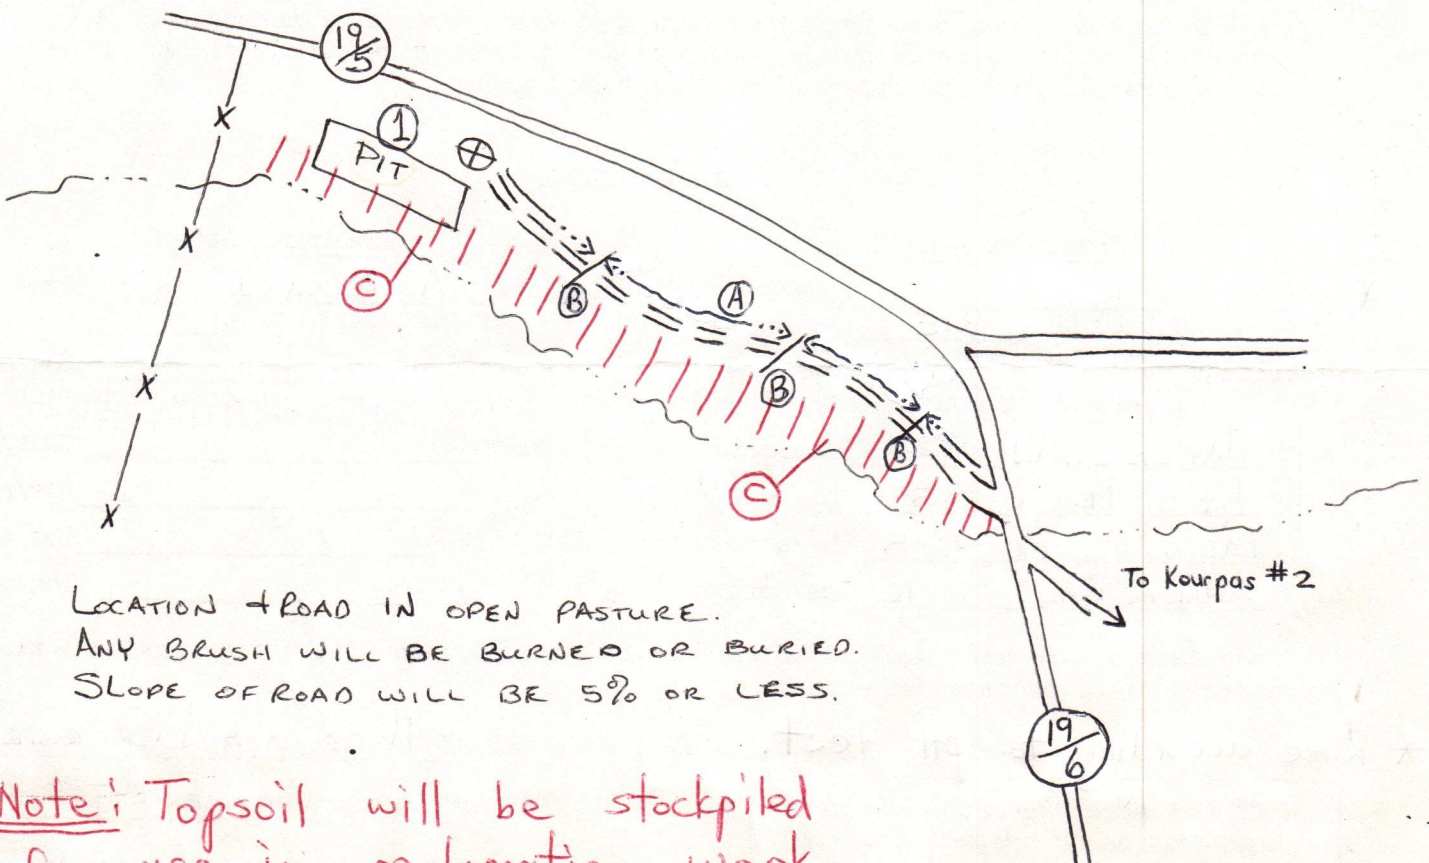 19/5
1
PIT
C
B
A
B
B
C
To Kourpas #2
LOCATION + ROAD IN OPEN PASTURE.
ANY BRUSH WILL BE BURNED OR BURIED.
SLOPE OF ROAD WILL BE 5% OR LESS.
19/6
Note: Topsoil will be stockpiled
use in work